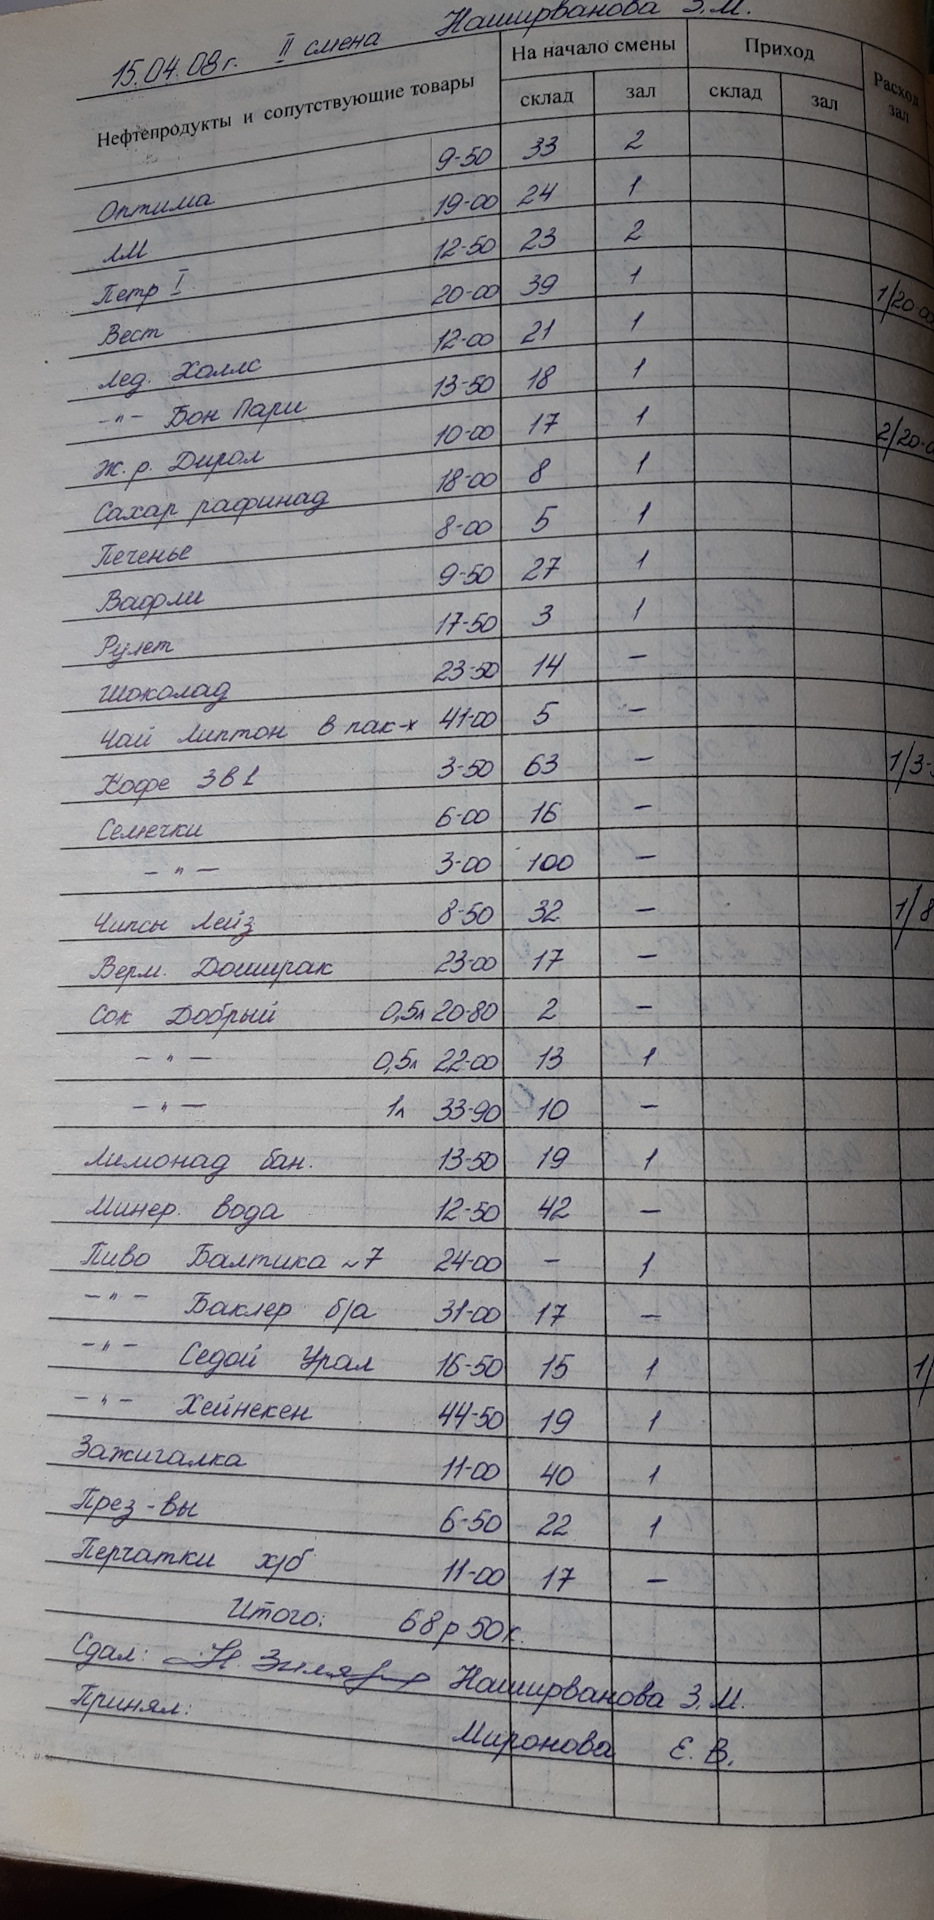 15.04.08г. II смена Наширванова З.М.
Нефтепродукты и сопутствующие товары На начало смены Приход Расход
склад зал склад зал зал
Оптима 9-50 33 2
ЛМ 19-00 24 1
Петр I 12-50 23 2
Вест 20-00 39 1 1/20-00
Лед. Холлс 12-00 21 1
-"- Бон Пари 13-50 18 1
Ж.р. Дирол 10-00 17 1 2/20-0
Сахар рафинад 18-00 8 1
Печенье 8-00 5 1
Вафли 9-50 27 1
Рулет 17-50 3 1
Шоколад 23-50 14 –
Чай Липтон в пак-х 41-00 5 –
Кофе 3в1 3-50 63 – 1/3-
Семечки 6-00 16 –
-"- 3-00 100 –
Чипсы Лейз 8-50 32 – 1/8
Верм. Доширак 23-00 17 –
Сок Добрый 0,5л 20-80 2 –
-"- 0,5л 22-00 13 1
-"- 1л 33-90 10 –
Лимонад бан. 13-50 19 1
Минер. вода 12-50 42 –
Пиво Балтика ~7 24-00 – 1
-"- Баклер б/а 31-00 17 –
-"- Седой Урал 16-50 15 1 1/
-"- Хейнекен 44-50 19 1
Зажигалка 11-00 40 1
През-вы 6-50 22 1
Перчатки х/б 11-00 17 –
Итого: 68р 50к.
Сдал: Наширванова З.М.
Принял: Миронова Е.В.